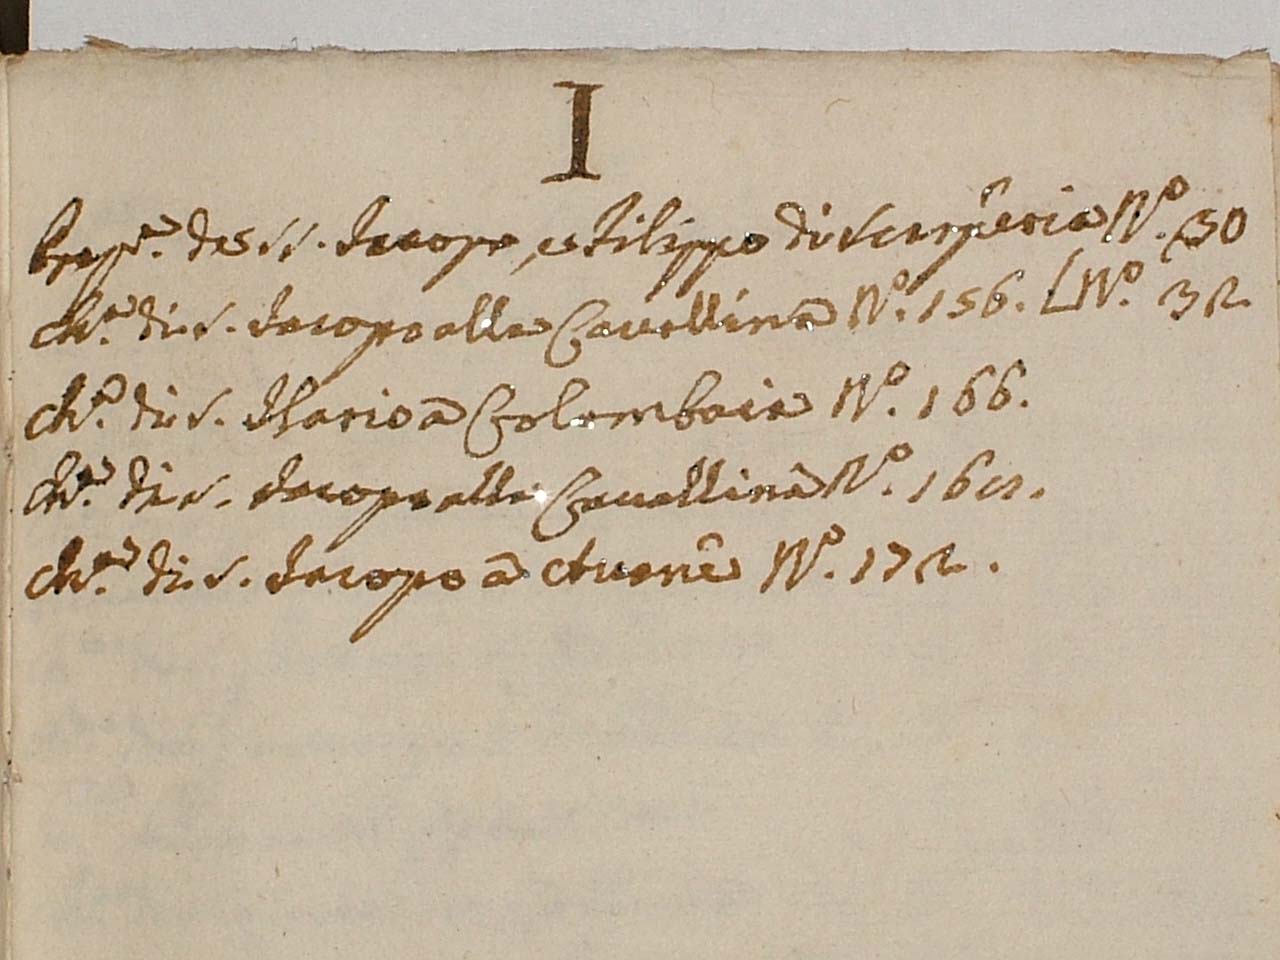 I
Prop.ra de SS. Iacopo, e Filippo di Scarperia N.o 30
Ch.a di S. Iacopo alla Cavallina N.o 156. [N.o 32
Ch.a di S. Ilario a Colombaia N.o 166.
Ch.a di S. Iacopo alla Cavallina N.o
Ch.a di S. Iacopo a N.o 172.